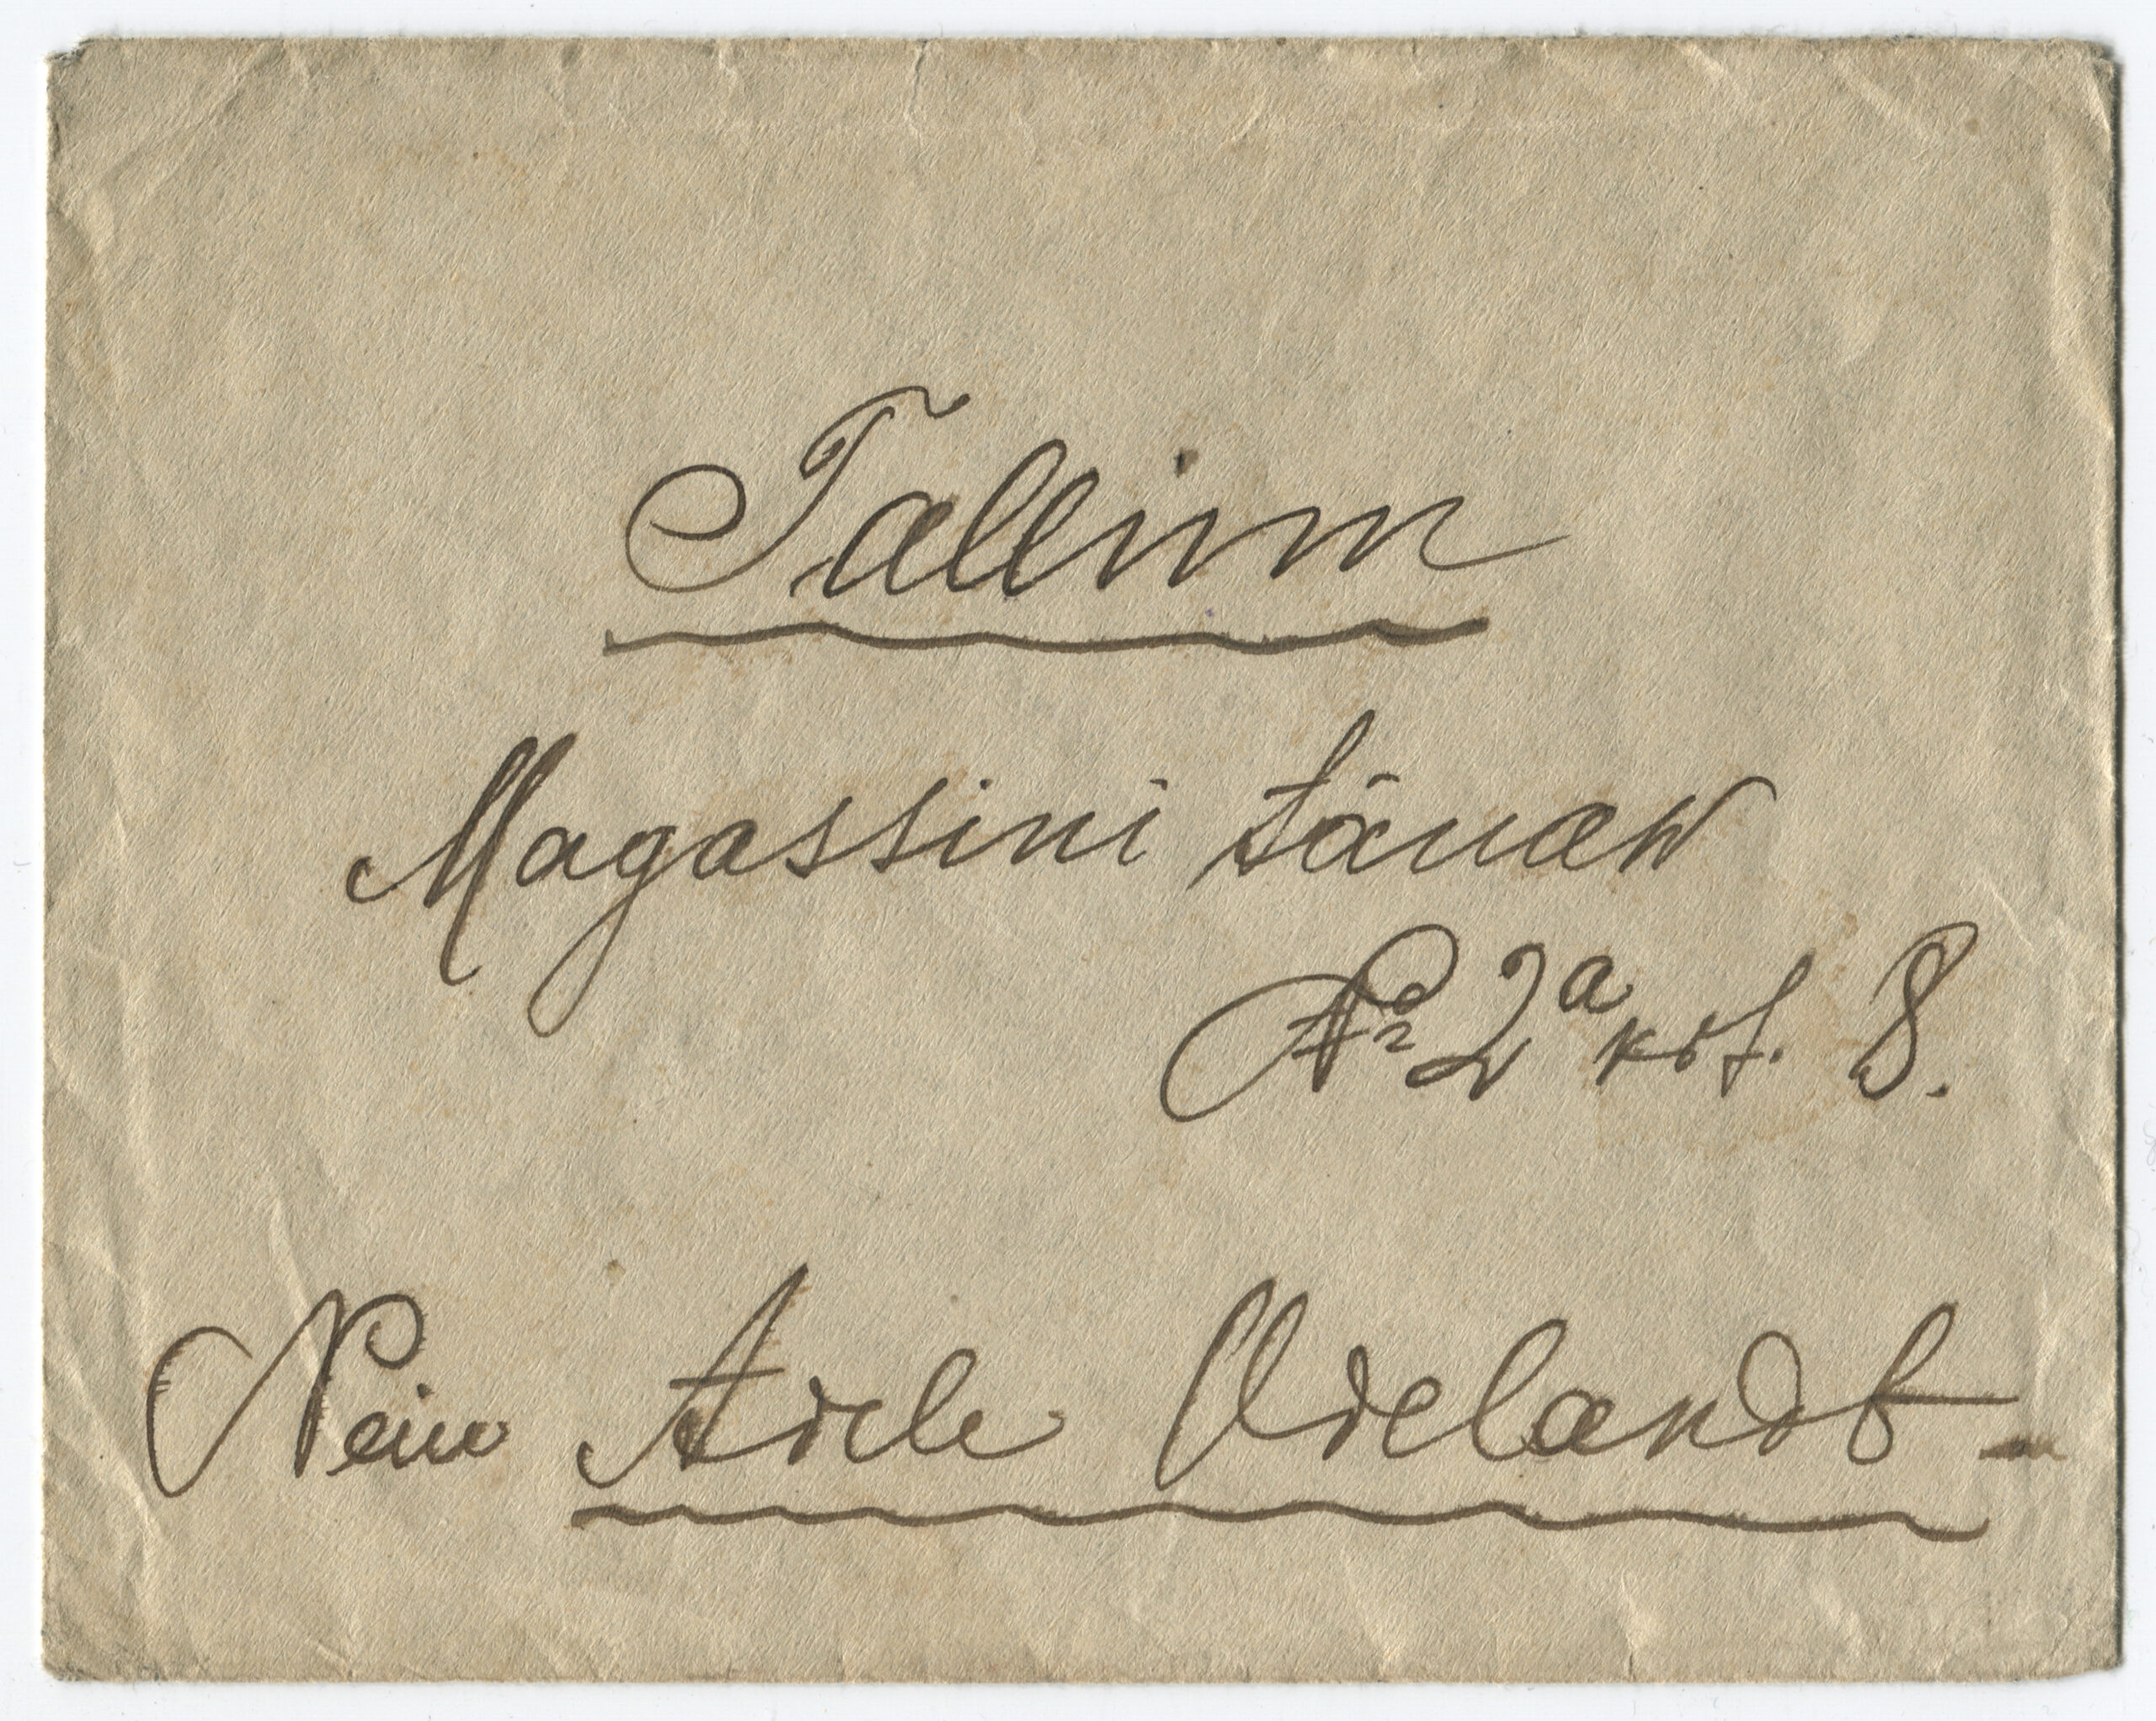 Tallinn
Magassini tänaw
№ 2a krt. 8.
Neiu Adele Udelandt